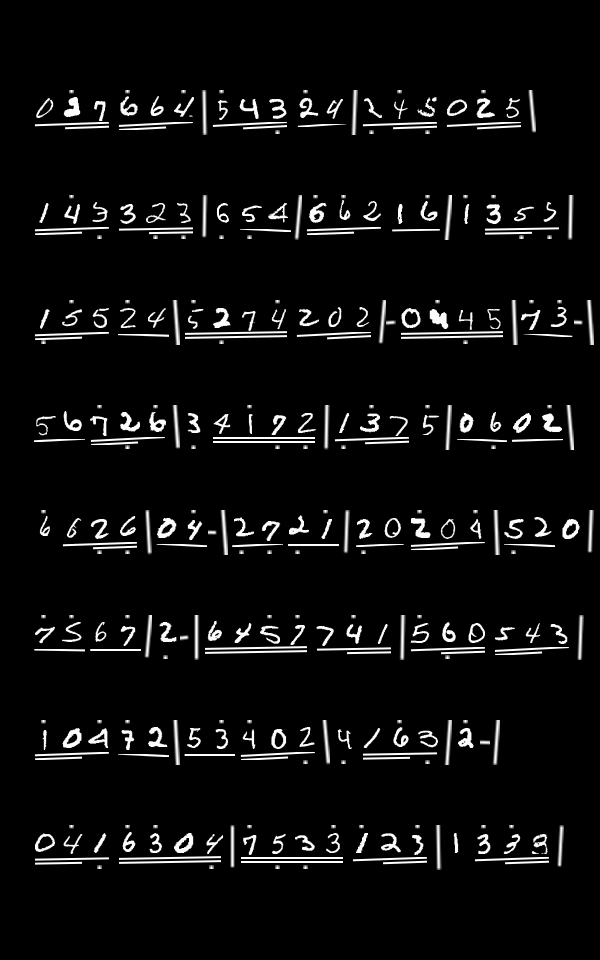 0 2 7 6 6 4 | 5 4 3 2 4 | 2 4 5 0 2 5 |
1 4 3 3 2 3 | 6 5 4 | 6 6 2 1 6 | 1 3 5 5 |
1 5 5 2 4 | 5 2 7 4 2 0 2 | - 0 4 4 5 | 7 3 - |
5 6 7 2 6 | 3 4 1 7 2 | 1 3 7 5 | 0 6 0 2 |
6 6 2 6 | 0 4 - | 2 7 2 1 | 2 0 2 0 4 | 5 2 0 |
7 5 6 7 | 2 - | 6 4 5 7 7 4 1 | 5 6 0 5 4 3 |
1 0 4 7 2 | 5 3 4 0 2 | 4 1 6 3 | 2 - |
0 4 1 6 3 0 4 | 7 5 3 3 1 2 3 | 1 3 3 3 |